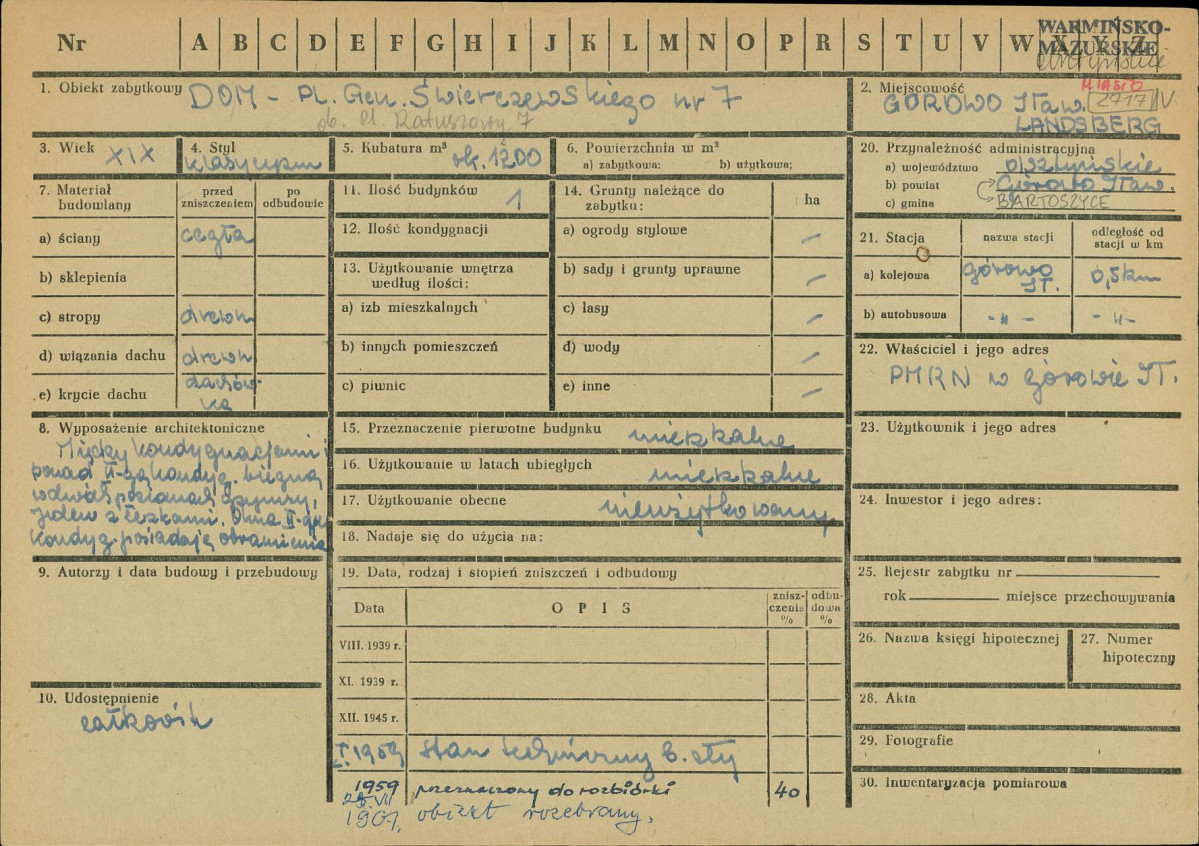 Nr A B C D E F G H I J K L M N O P R S T U V W X Y Z
WARMIŃSKO-
MAZURSKIE
1. Obiekt zabytkowy DOM - Pl. Gen. Świerczewskiego nr 7
ob. Pl. Ratuszowy 7
2. Miejscowość MIASTO
GÓROWO Iław. 2717 IV
LANDSBERG
3. Wiek XIX
4. Styl
klasycyzm
5. Kubatura m³
ok. 1200
6. Powierzchnia w m²
a) zabytkowa: b) użytkowa;
20. Przynależność administracyjna
a) województwo olsztyńskie
b) powiat Górowo Iław.
c) gmina BARTOSZYCE
7. Materiał budowlany
przed zniszczeniem
po odbudowie
a) ściany cegła
b) sklepienia
c) stropy drewn
d) wiązania dachu drewn
e) krycie dachu dachów-
ka
11. Ilość budynków 1
12. Ilość kondygnacji
13. Użytkowanie wnętrza
według ilości:
a) izb mieszkalnych
b) innych pomieszczeń
c) piwnic
14. Grunty należące do
zabytku: ha
a) ogrody stylowe —
b) sady i grunty uprawne —
c) lasy —
d) wody —
e) inne —
21. Stacja
nazwa stacji
odległość od
stacji w km
a) kolejowa Górowo
IŁ. 0,5 km
b) autobusowa -"- -"-
22. Właściciel i jego adres
PMRN w Górowie IŁ.
8. Wyposażenie architektoniczne
Między kondygnacjami i
ponad II-gą kondyg. biegną
w dwóch poziomach gzymsy,
jeden z ząbkami. Okna II-giej
kondyg. posiadają obramienia
15. Przeznaczenie pierwotne budynku mieszkalne
16. Użytkowanie w latach ubiegłych mieszkalne
17. Użytkowanie obecne nieużytkowany
18. Nadaje się do użycia na:
23. Użytkownik i jego adres
24. Inwestor i jego adres:
9. Autorzy i data budowy i przebudowy
19. Data, rodzaj i stopień zniszczeń i odbudowy
Data OPIS znisz-
czenia
%
odbu-
dowa
%
VIII. 1939 r.
XI. 1939 r.
XII. 1945 r.
I. 1959 stan techniczny b. zły
1959 przeznaczony do rozbiórki 40
obiekt rozebrany.
25. Rejestr zabytku nr
rok miejsce przechowywania
26. Nazwa księgi hipotecznej
27. Numer
hipoteczny
10. Udostępnienie
całkowite
28. Akta
29. Fotografie
30. Inwentaryzacja pomiarowa